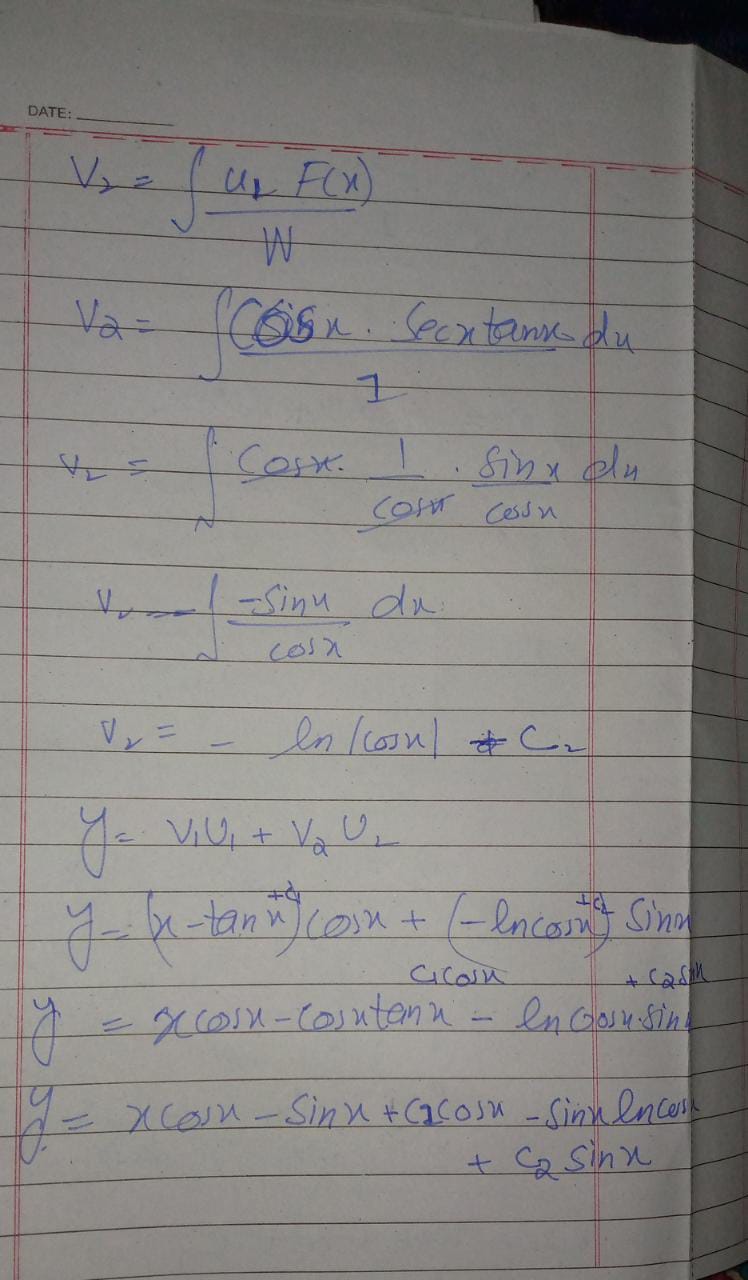 DATE:
V₂ = ∫ u₁ F(x) / W
V₂ = ∫ Cosx . Secx tanx dx / 1
V₂ = ∫ Cosx . 1/cosx . Sinx/cosx dx
V₂ = ∫ -Sinx/cosx dx
V₂ = - ln |cosx| + C₂
y = V₁U₁ + V₂U₂
y = (x - tanx + c₁) cosx + (-ln cosx + c₂) Sinx
y = x cosx - Cosx tanx + C₁ Cosx - ln Cosx . Sinx + C₂ Sinx
y = x cosx - Sinx + C₁ Cosx - Sinx ln Cosx
+ C₂ Sinx